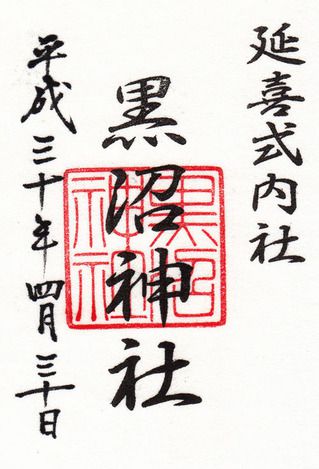 延喜式内社
黒沼神社
黒沼
神社
平成三十年四月三十日